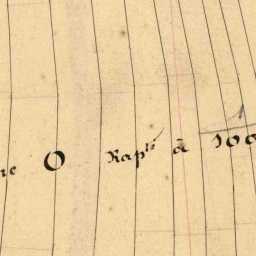 ne O Rap.té à 100